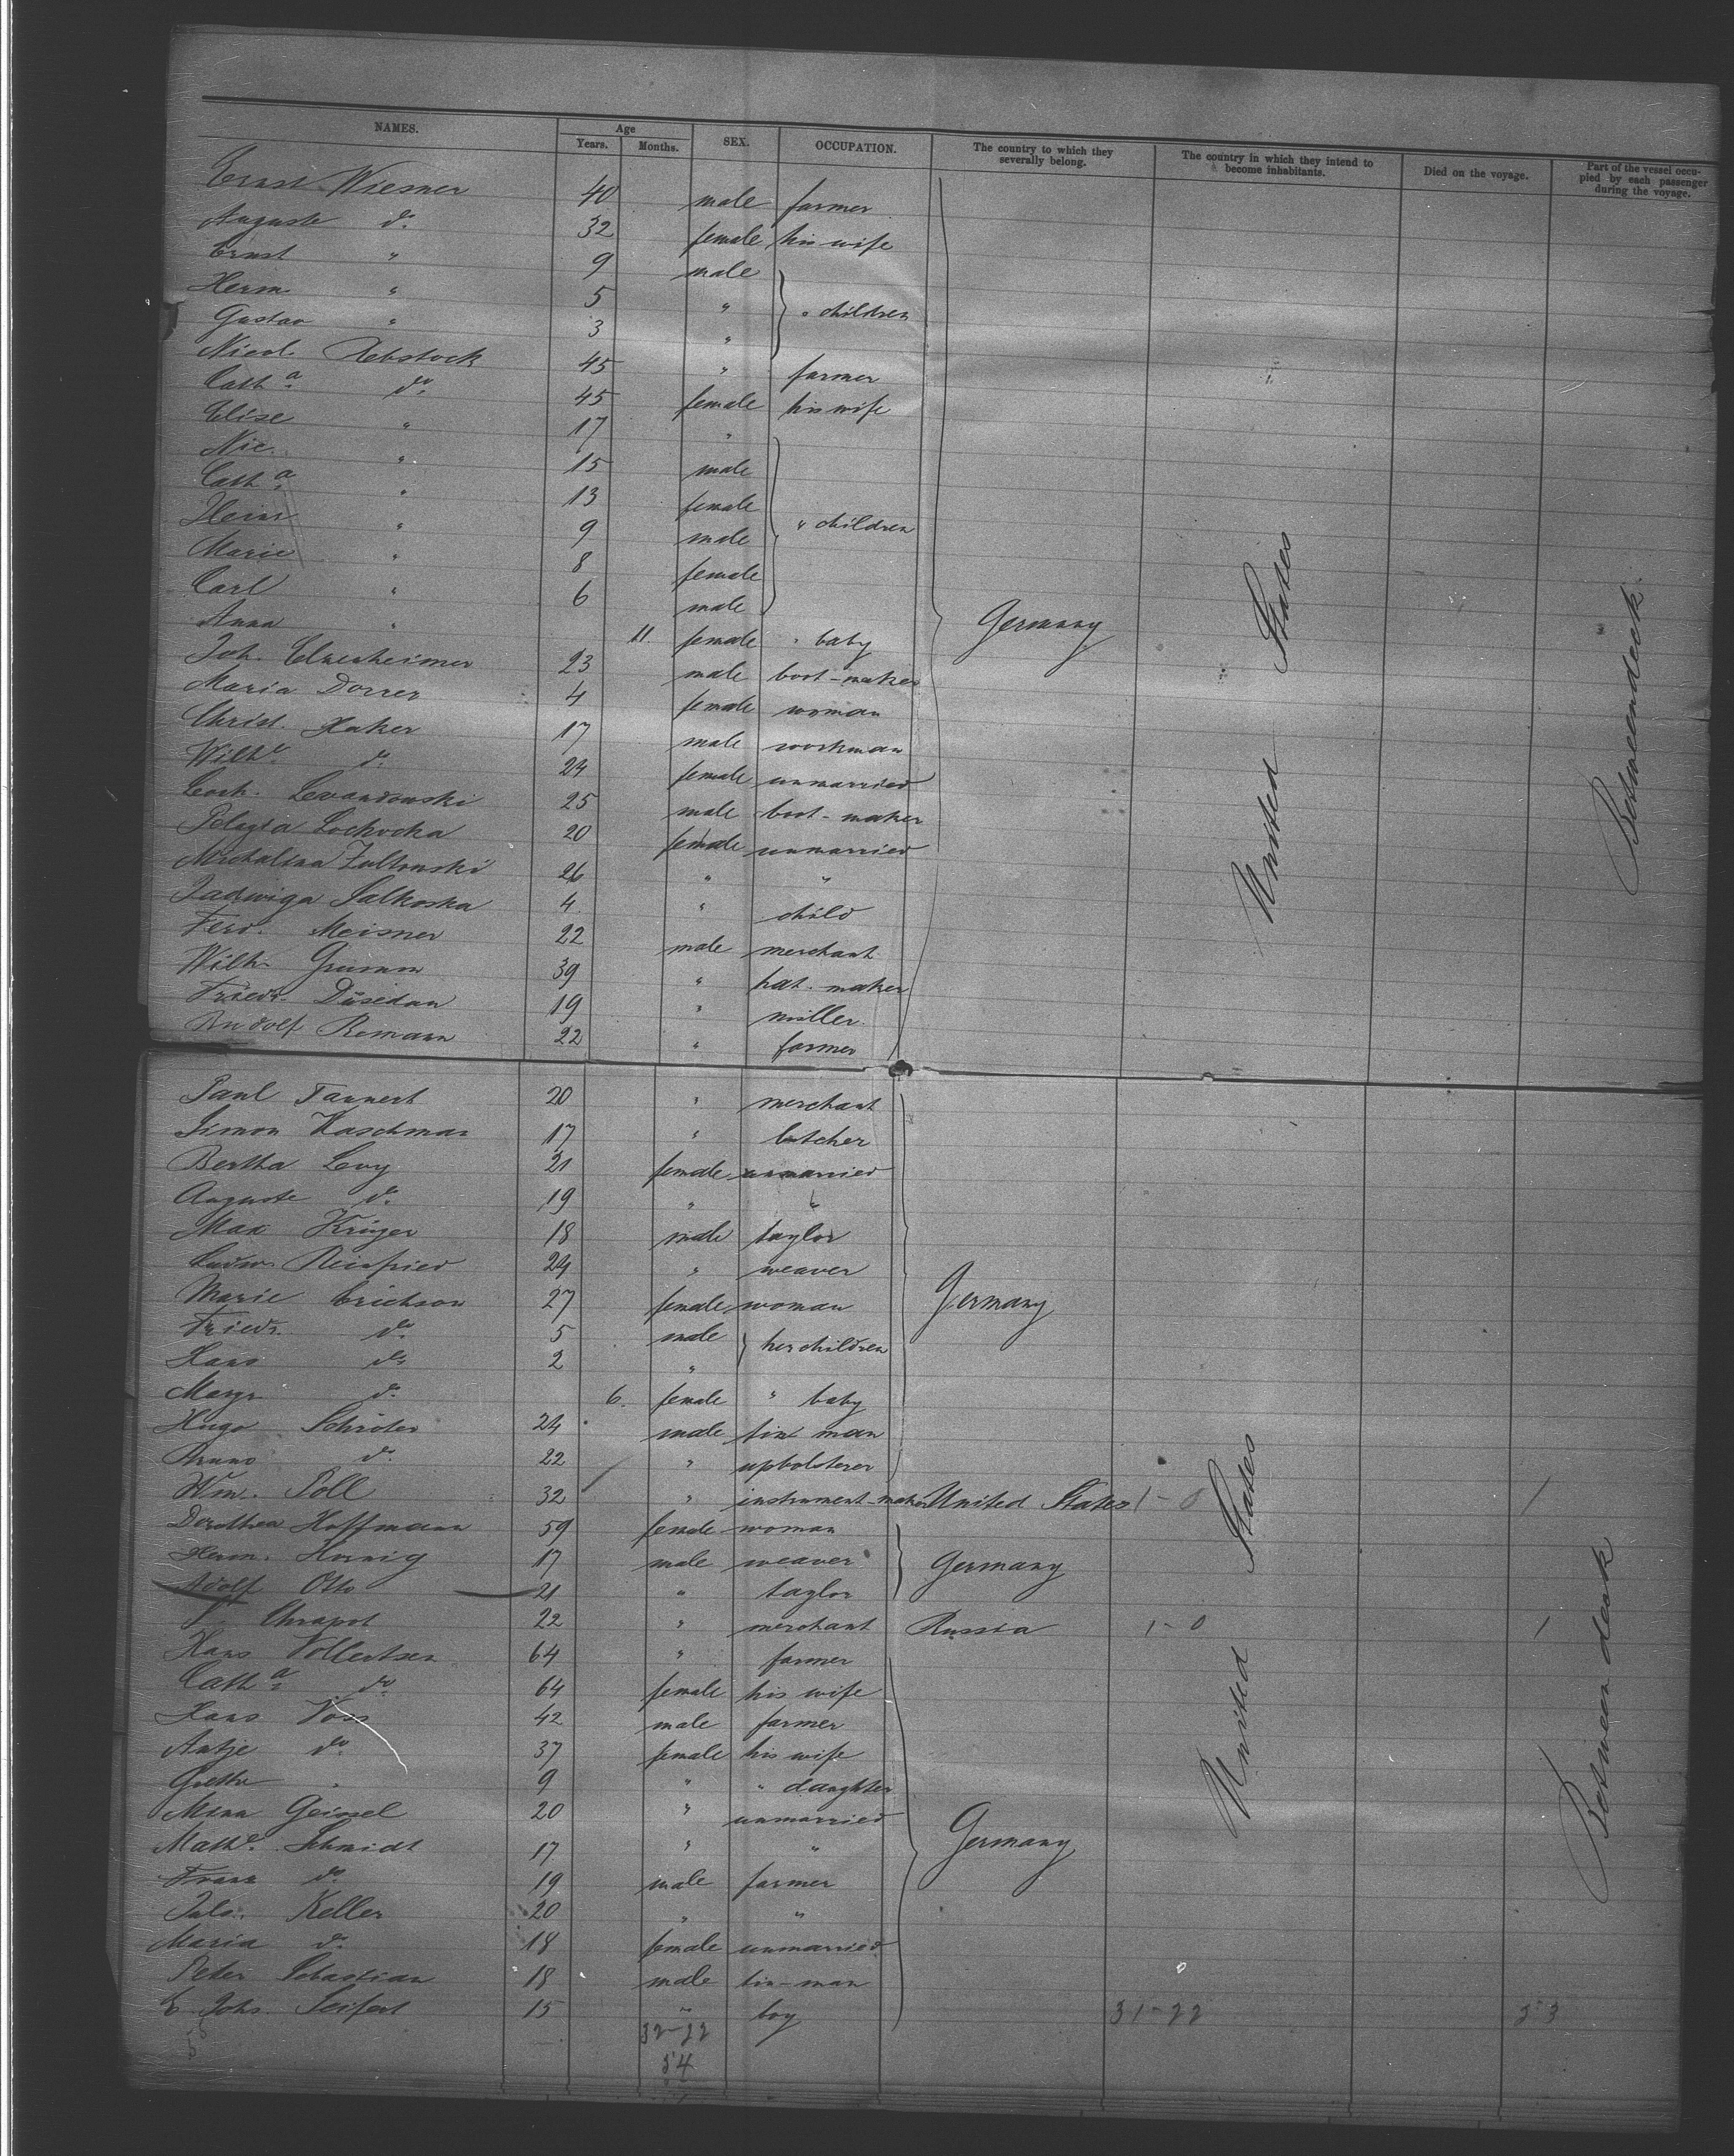 NAMES. Age Years. Months. SEX. OCCUPATION. The country to which they severally belong. The country in which they intend to become inhabitants. Died on the voyage. Part of the vessel occupied by each passenger during the voyage.
Ernst Wiesner 40 male farmer
Auguste do. 32 female his wife
Ernst " 9 male
Herm. " 5 " " children
Gustav " 3 "
Nicol. Rebstock 45 " farmer
Catha. do. 45 female his wife
Elise " 17 "
Nic. " 15 male
Catha. " 13 female
Heinr " 9 male " children
Marie " 8 female
Carl " 6 male
Anna " 11. female " baby Germany United States Betweendeck.
Joh. 23 male boot-maker
Maria Dorrer 4 female woman
Christ. Haker 17 male workman
Wilhe. do. 24 female unmarried
Levandowski 25 male boot-maker
Pelagia Lochocka 20 female unmarried
Michalina 26 " "
Jadwiga Salkoska 4 " child
Ferd. Meisner 22 male merchant
Wilh. Grumm 39 " hat-maker
Friedr. Düsedau 19 " miller
Rudolf Romann 22 " farmer
Paul Tannert 20 " merchant
Simon Kaschmar 17 " butcher
Bertha Levy 21 female unmarried
Auguste do. 19 " "
Max Krüger 18 male taylor
Ludw. Reinfried 24 " weaver
Marie Erichson 27 female woman Germany
Friedr. do. 5 male her children
Hans do. 2 "
Margr do. 6. female " baby
Hugo Schröter 24 male tin man
Bruno do. 22 " upholsterer
Wm. Poll 32 " instrument-maker United States 1-0 1
Dorothea Hoffmann 59 female woman
Herm. Hornig 17 male weaver Germany
Adolf Otto 21 " taylor
Chrapot 22 " merchant Russia 1-0 1
Hans Vollertsen 64 " farmer
Catha. do. 64 female his wife United States Between deck
Hans Voss 42 male farmer
Antje do. 37 female his wife
Grethe " 9 " " daughter
Mina Geissel 20 " unmarried
Mathe. Schmidt 17 " " Germany
Franz do. 19 male farmer
Juls. Keller 20 " "
Maria do. 18 female unmarried
Peter Sebastian 18 male tin-man
E. Johs. Seifert 15 " boy 31-22 53
32-22
54